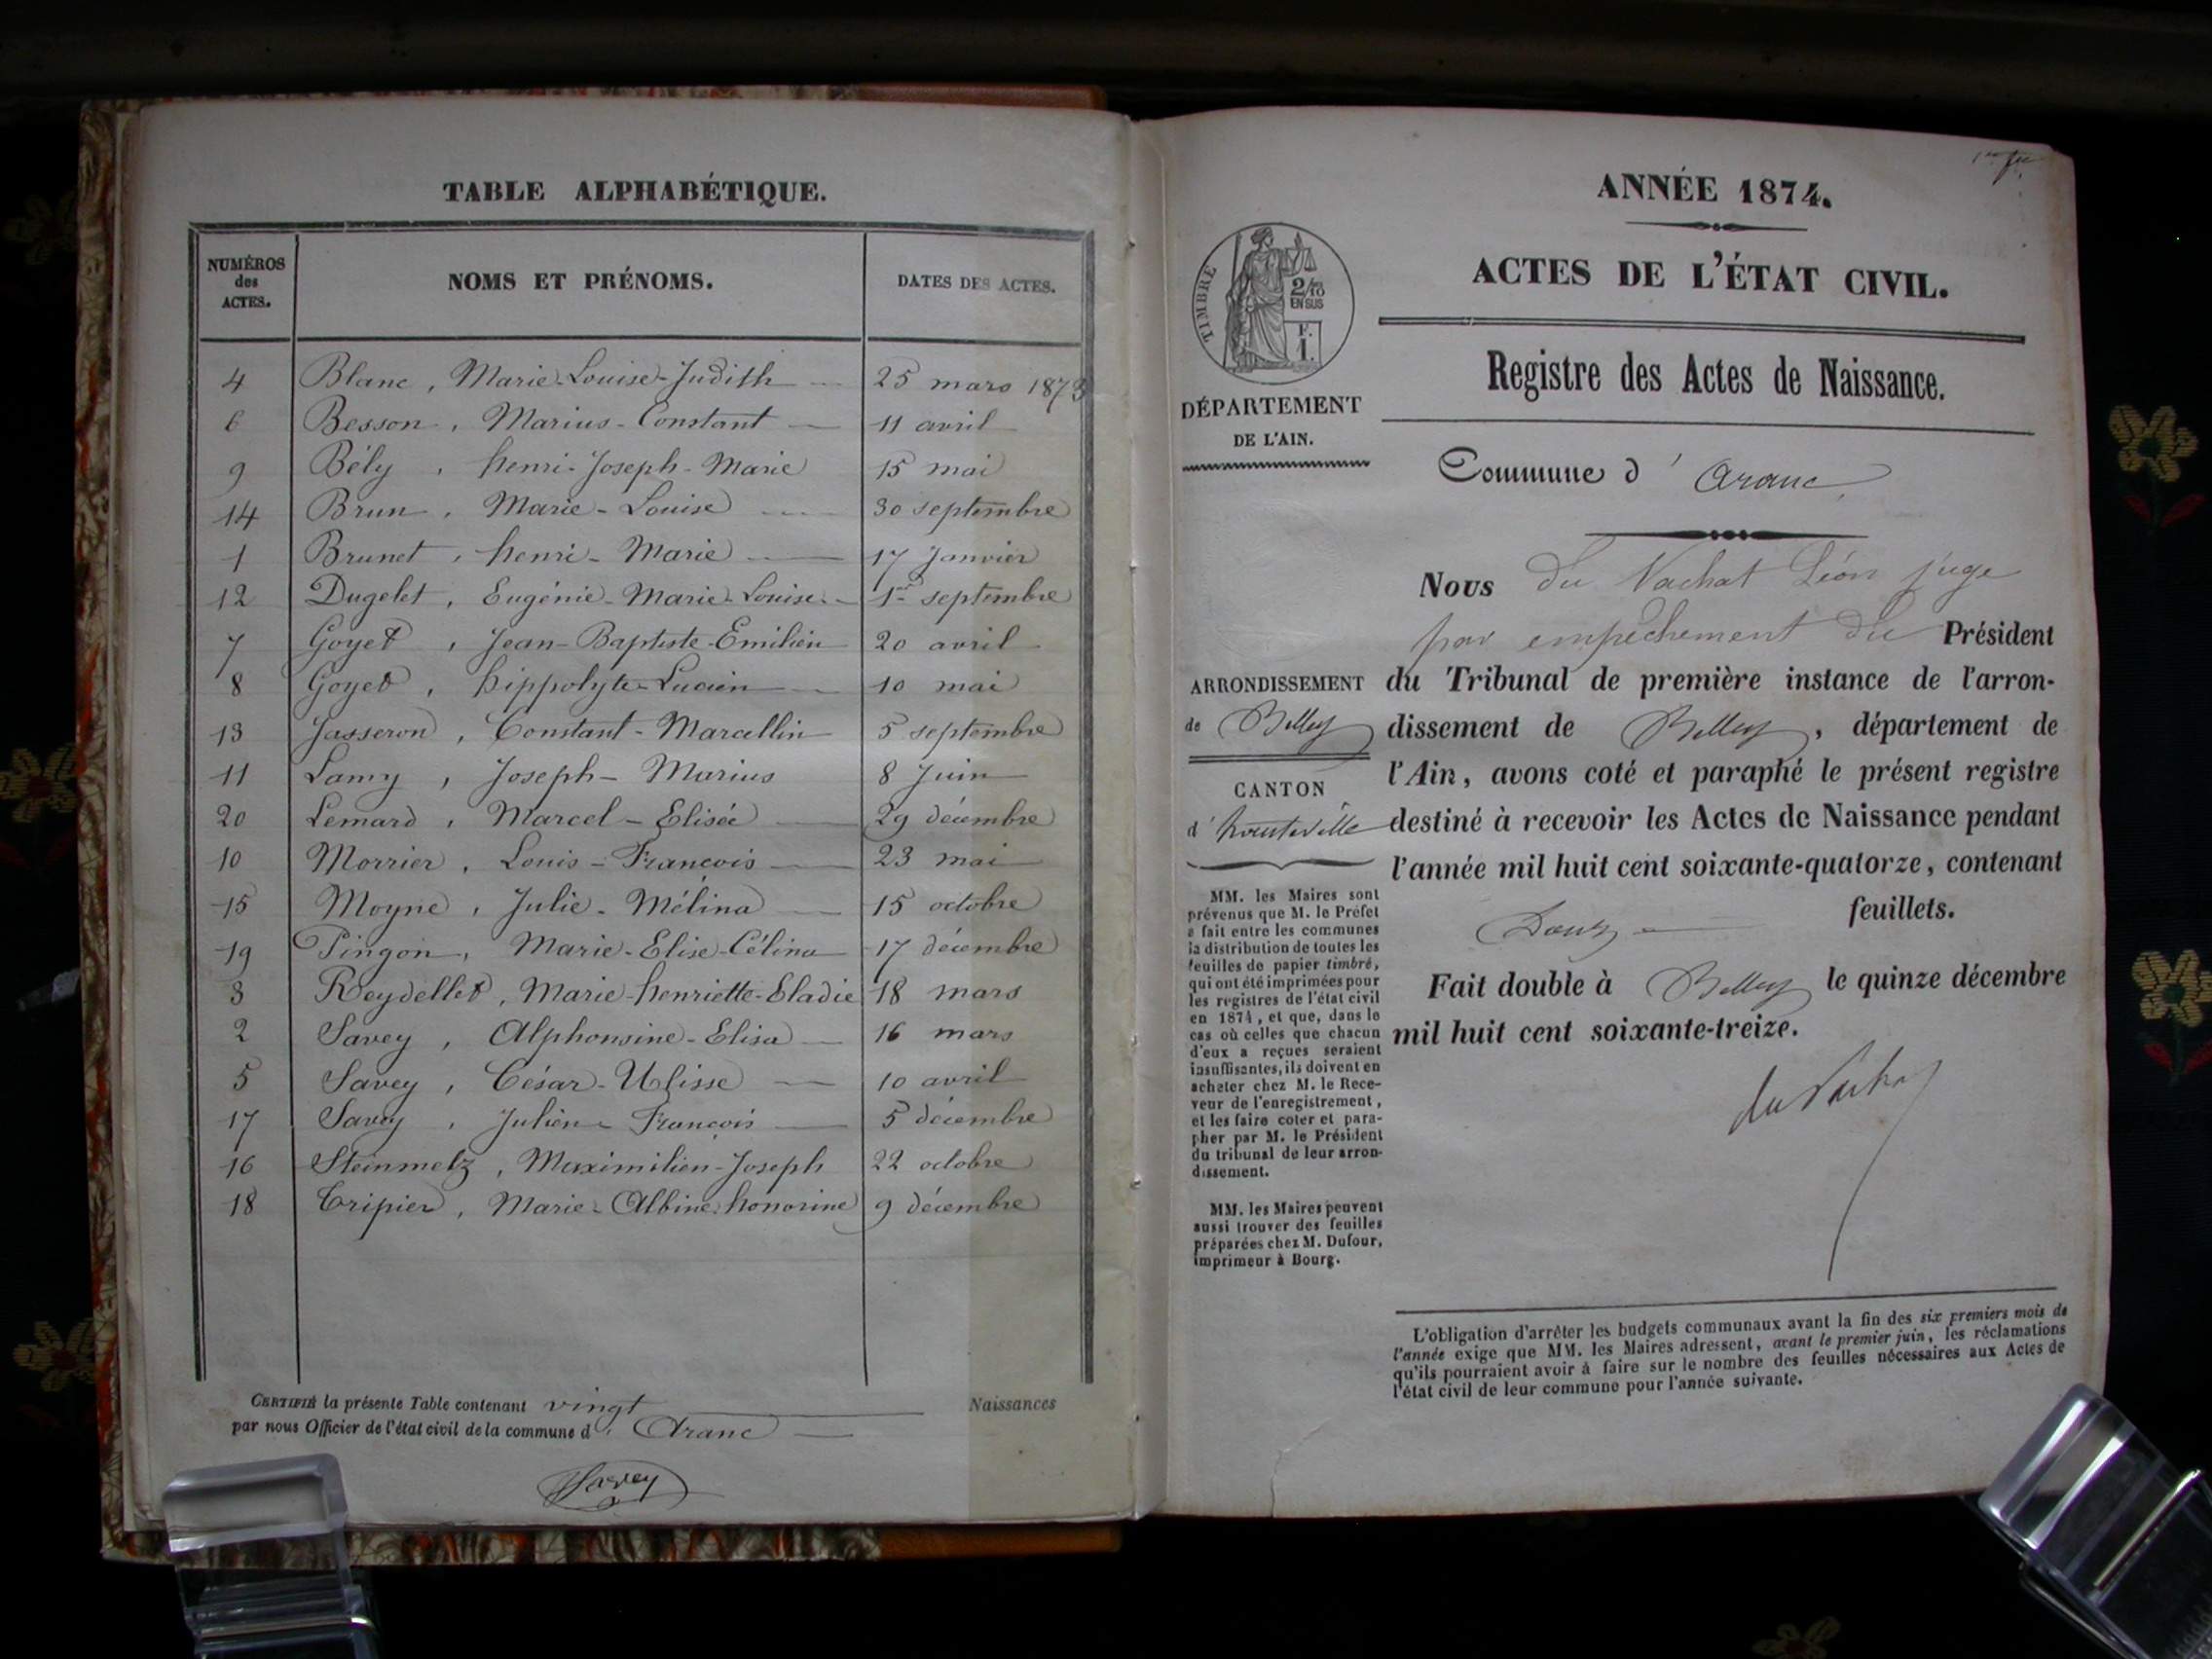 TABLE ALPHABÉTIQUE.
NUMÉROS des ACTES. NOMS ET PRÉNOMS. DATES DES ACTES.
4 Blanc, Marie-Louise-Judith 25 mars 1873
6 Besson, Marius-Constant 11 avril
9 Bély, henri-Joseph-Marie 15 mai
14 Brun, Marie-Louise 30 septembre
1 Brunet, henri-Marie 17 Janvier
12 Dugelet, Eugénie-Marie-Louise 1er septembre
7 Goyet, Jean-Baptiste-Emilien 20 avril
8 Goyet, hippolyte-Lucien 10 mai
13 Jasseron, Constant-Marcellin 5 septembre
11 Lamy, Joseph-Marius 8 Juin
20 Lemard, Marcel-Elisée 29 décembre
10 Morrier, Louis-François 23 mai
15 Moyne, Julie-Mélina 15 octobre
19 Pingon, Marie-Elise-Célina 17 décembre
3 Reydellet, Marie-henriette-Eladie 18 mars
2 Savey, Alphonsine-Elisa 16 mars
5 Savey, César-Ulisse 10 avril
17 Savey, Julien-François 5 décembre
16 Steinmetz, Maximilien-Joseph 22 octobre
18 Tripier, Marie-Albine-honorine 9 décembre
CERTIFIÉ la présente Table contenant vingt Naissances
par nous Officier de l'état civil de la commune d' Aranc
Savey
ANNÉE 1874.
ACTES DE L'ÉTAT CIVIL.
TIMBRE
2/10
EN SUS
F.
1.
Registre des Actes de Naissance.
DÉPARTEMENT
DE L'AIN.
Commune d' Aranc
Nous du Vachat Léon juge
par empêchement du Président
du Tribunal de première instance de l'arron-
dissement de Belley, département de
l'Ain, avons coté et paraphé le présent registre
destiné à recevoir les Actes de Naissance pendant
l'année mil huit cent soixante-quatorze, contenant
Douze feuillets.
Fait double à Belley le quinze décembre
mil huit cent soixante-treize.
du Vachat
ARRONDISSEMENT
de Belley
CANTON
d' hauteville
MM. les Maires sont
prévenus que M. le Préfet
a fait entre les communes
la distribution de toutes les
feuilles de papier timbré,
qui ont été imprimées pour
les registres de l'état civil
en 1874, et que, dans le
cas où celles que chacun
d'eux a reçues seraient
insuffisantes, ils doivent en
acheter chez M. le Rece-
veur de l'enregistrement,
et les faire coter et para-
pher par M. le Président
du tribunal de leur arron-
dissement.
MM. les Maires peuvent
aussi trouver des feuilles
préparées chez M. Dufour,
imprimeur à Bourg.
L'obligation d'arrêter les budgets communaux avant la fin des six premiers mois de
l'année exige que MM. les Maires adressent, avant le premier juin, les réclamations
qu'ils pourraient avoir à faire sur le nombre des feuilles nécessaires aux Actes de
l'état civil de leur commune pour l'année suivante.